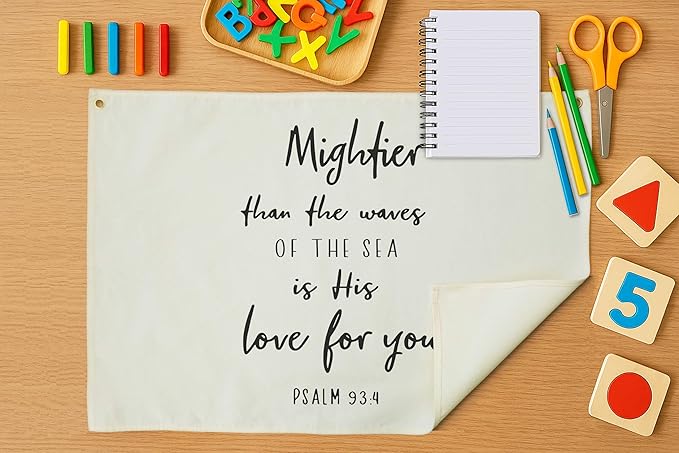 B
X
Mightier
than the waves
OF THE SEA
is His
love for you
PSALM 93:4
5